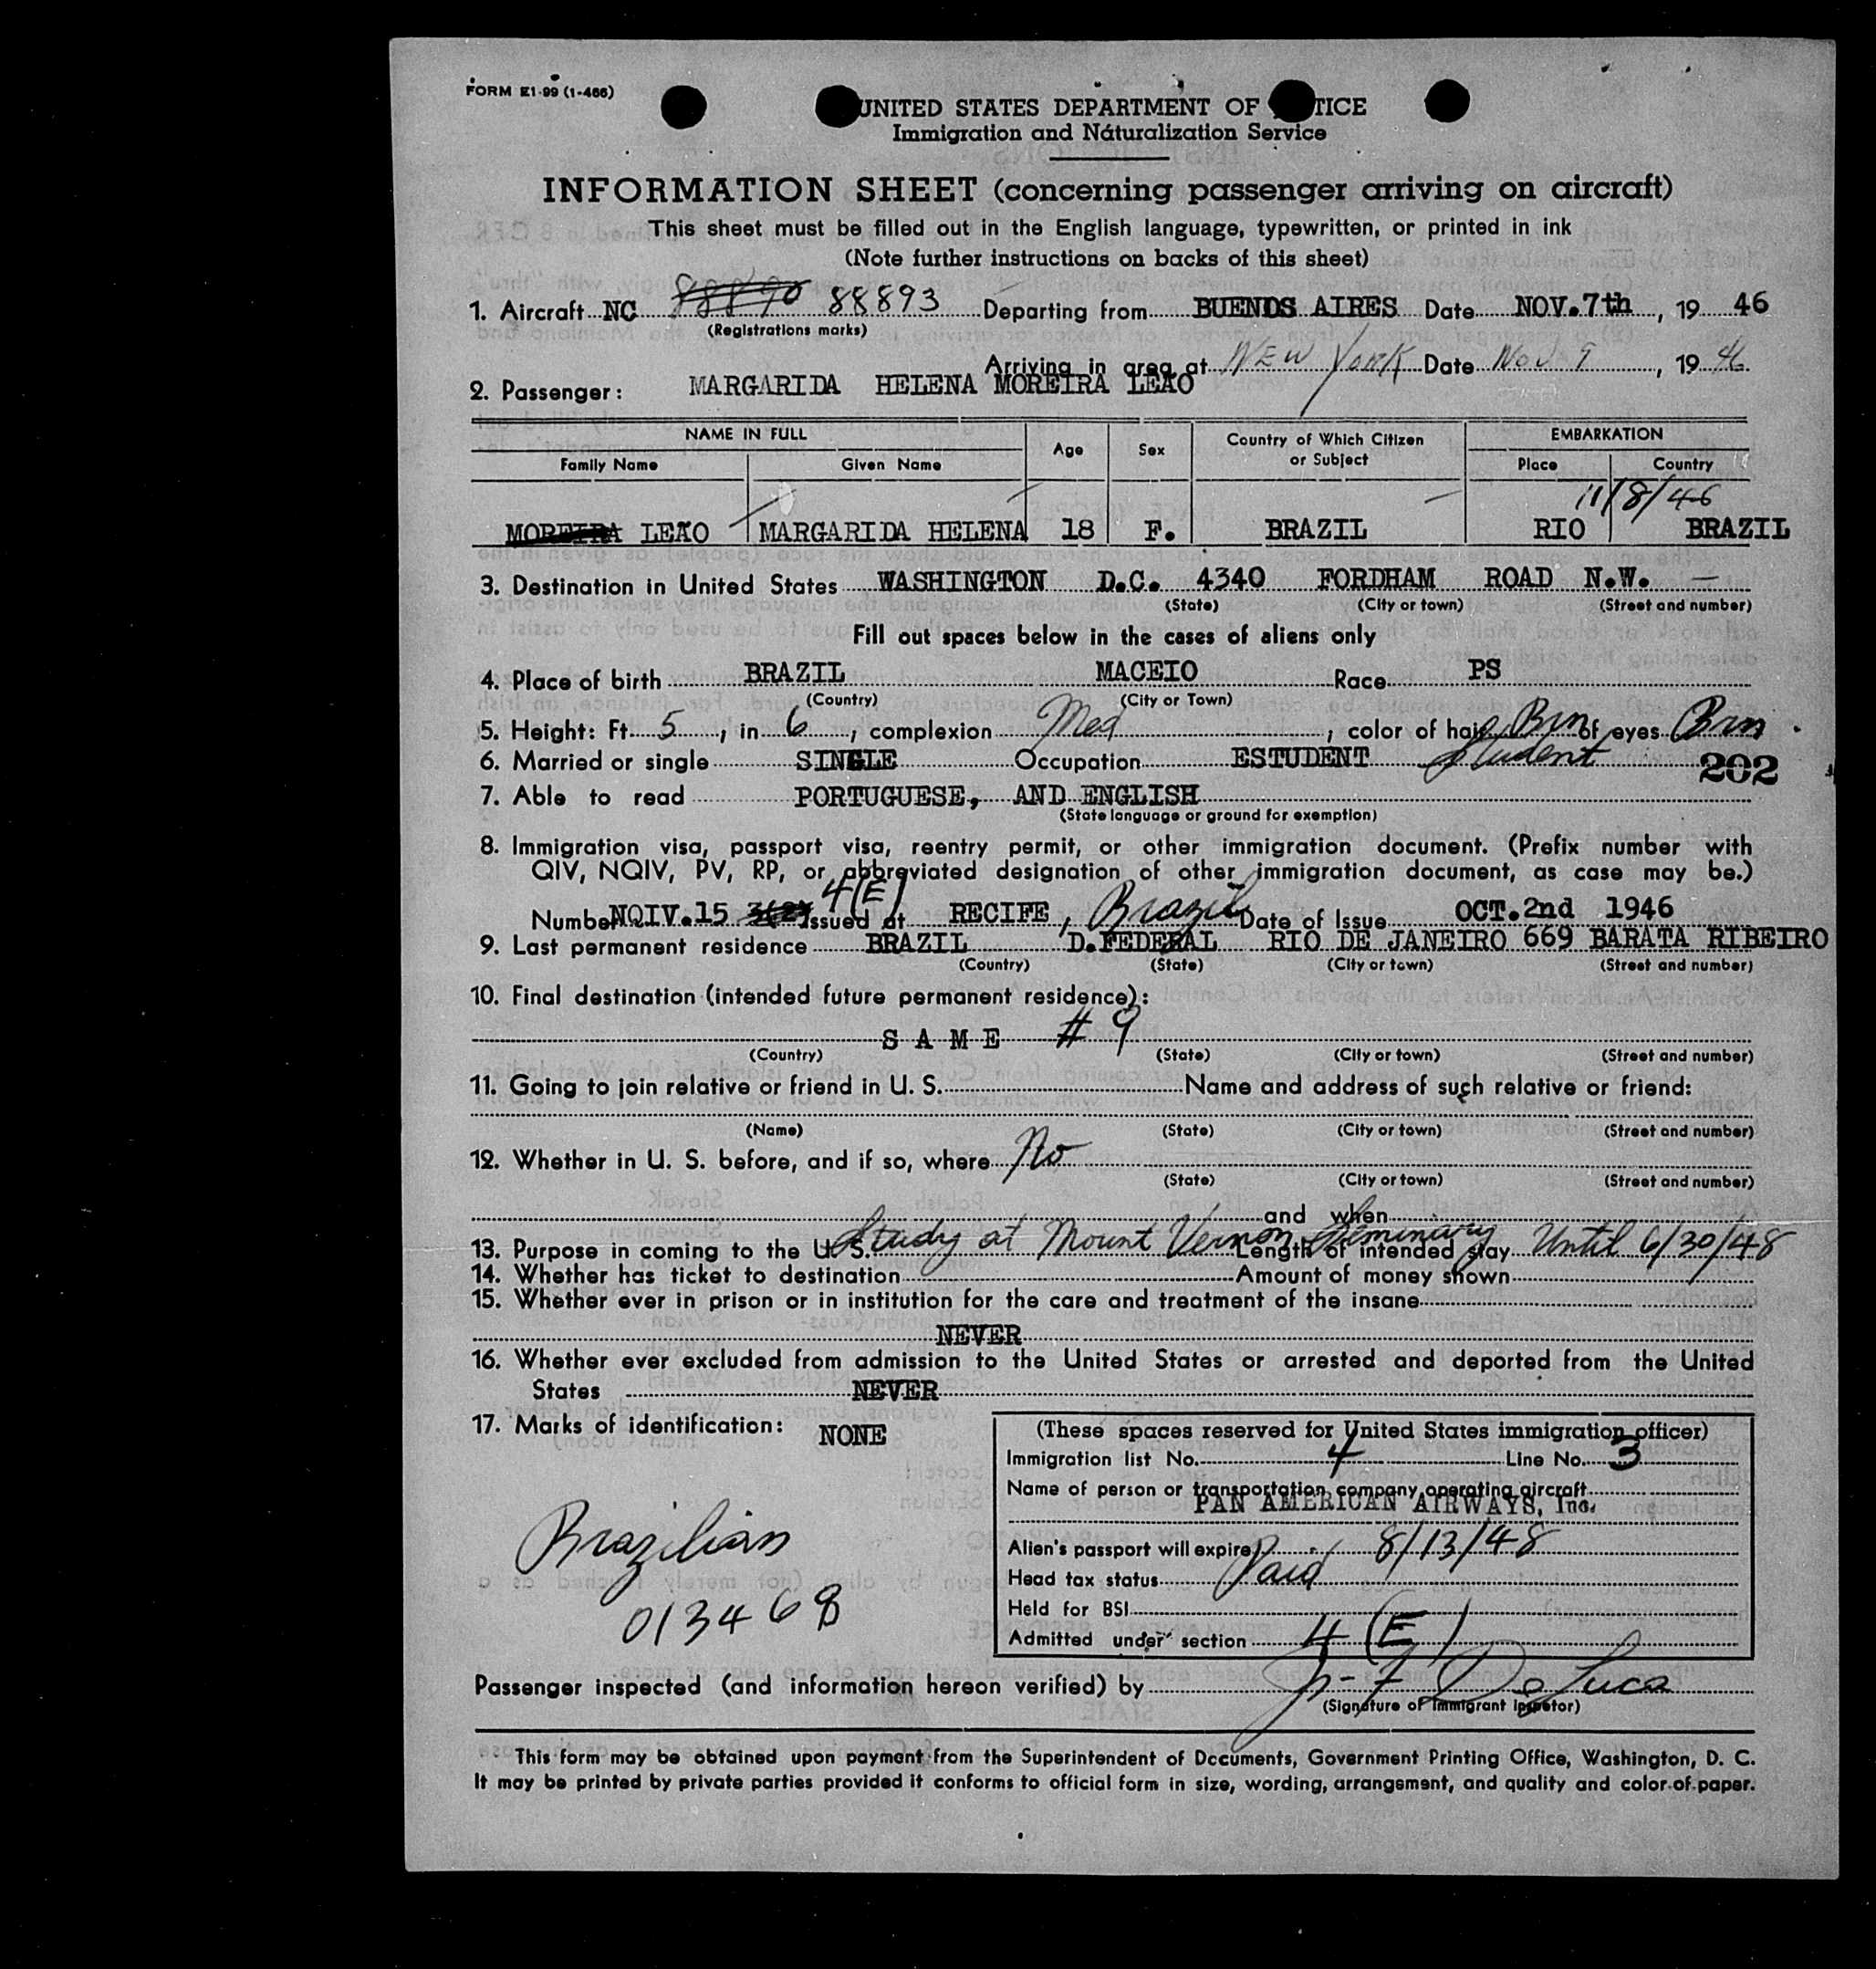 FORM E1-99 (1-466)
UNITED STATES DEPARTMENT OF TICE
Immigration and Naturalization Service
INFORMATION SHEET (concerning passenger arriving on aircraft)
This sheet must be filled out in the English language, typewritten, or printed in ink
(Note further instructions on backs of this sheet)
1. Aircraft NC 88890 88893 Departing from BUENOS AIRES Date NOV.7th, 19 46
(Registrations marks)
Arriving in area at NEW YORK Date Nov 9, 19 46
2. Passenger: MARGARIDA HELENA MOREIRA LEÃO
NAME IN FULL Age Sex Country of Which Citizen or Subject EMBARKATION
Family Name Given Name Place Country
11/8/46
MOREIRA LEÃO MARGARIDA HELENA 18 F. BRAZIL RIO BRAZIL
3. Destination in United States WASHINGTON D.C. 4340 FORDHAM ROAD N.W. —
(State) (City or town) (Street and number)
Fill out spaces below in the cases of aliens only
4. Place of birth BRAZIL MACEIO Race PS
(Country) (City or Town)
5. Height: Ft. 5, in 6, complexion Med, color of hair Brn of eyes Brn.
6. Married or single SINGLE Occupation ESTUDENT Student 202
7. Able to read PORTUGUESE, AND ENGLISH
(State language or ground for exemption)
8. Immigration visa, passport visa, reentry permit, or other immigration document. (Prefix number with
QIV, NQIV, PV, RP, or abbreviated designation of other immigration document, as case may be.)
4(E)
Number NQIV.15 3(2) Issued at RECIFE, Brazil Date of Issue OCT.2nd 1946
9. Last permanent residence BRAZIL D.FEDERAL RIO DE JANEIRO 669 BARATA RIBEIRO
(Country) (State) (City or town) (Street and number)
10. Final destination (intended future permanent residence):
S A M E # 9
(Country) (State) (City or town) (Street and number)
11. Going to join relative or friend in U. S. Name and address of such relative or friend:
(Name) (State) (City or town) (Street and number)
12. Whether in U. S. before, and if so, where No
(State) (City or town) (Street and number)
and when
13. Purpose in coming to the U. S. Study at Mount Vernon Seminary Length of intended stay Until 6/30/48
14. Whether has ticket to destination Amount of money shown
15. Whether ever in prison or in institution for the care and treatment of the insane
NEVER
16. Whether ever excluded from admission to the United States or arrested and deported from the United
States NEVER
17. Marks of identification: NONE
(These spaces reserved for United States immigration officer)
Immigration list No. 4 Line No. 3
Name of person or transportation company operating aircraft
PAN AMERICAN AIRWAYS, Inc.
Alien's passport will expire 8/13/48
Head tax status Paid
Held for BSI
Admitted under section 4 (E)
Brazilian
013468
Passenger inspected (and information hereon verified) by J-F DeLuca
(Signature of Immigrant Inspetor)
This form may be obtained upon payment from the Superintendent of Documents, Government Printing Office, Washington, D. C.
It may be printed by private parties provided it conforms to official form in size, wording, arrangement, and quality and color of paper.